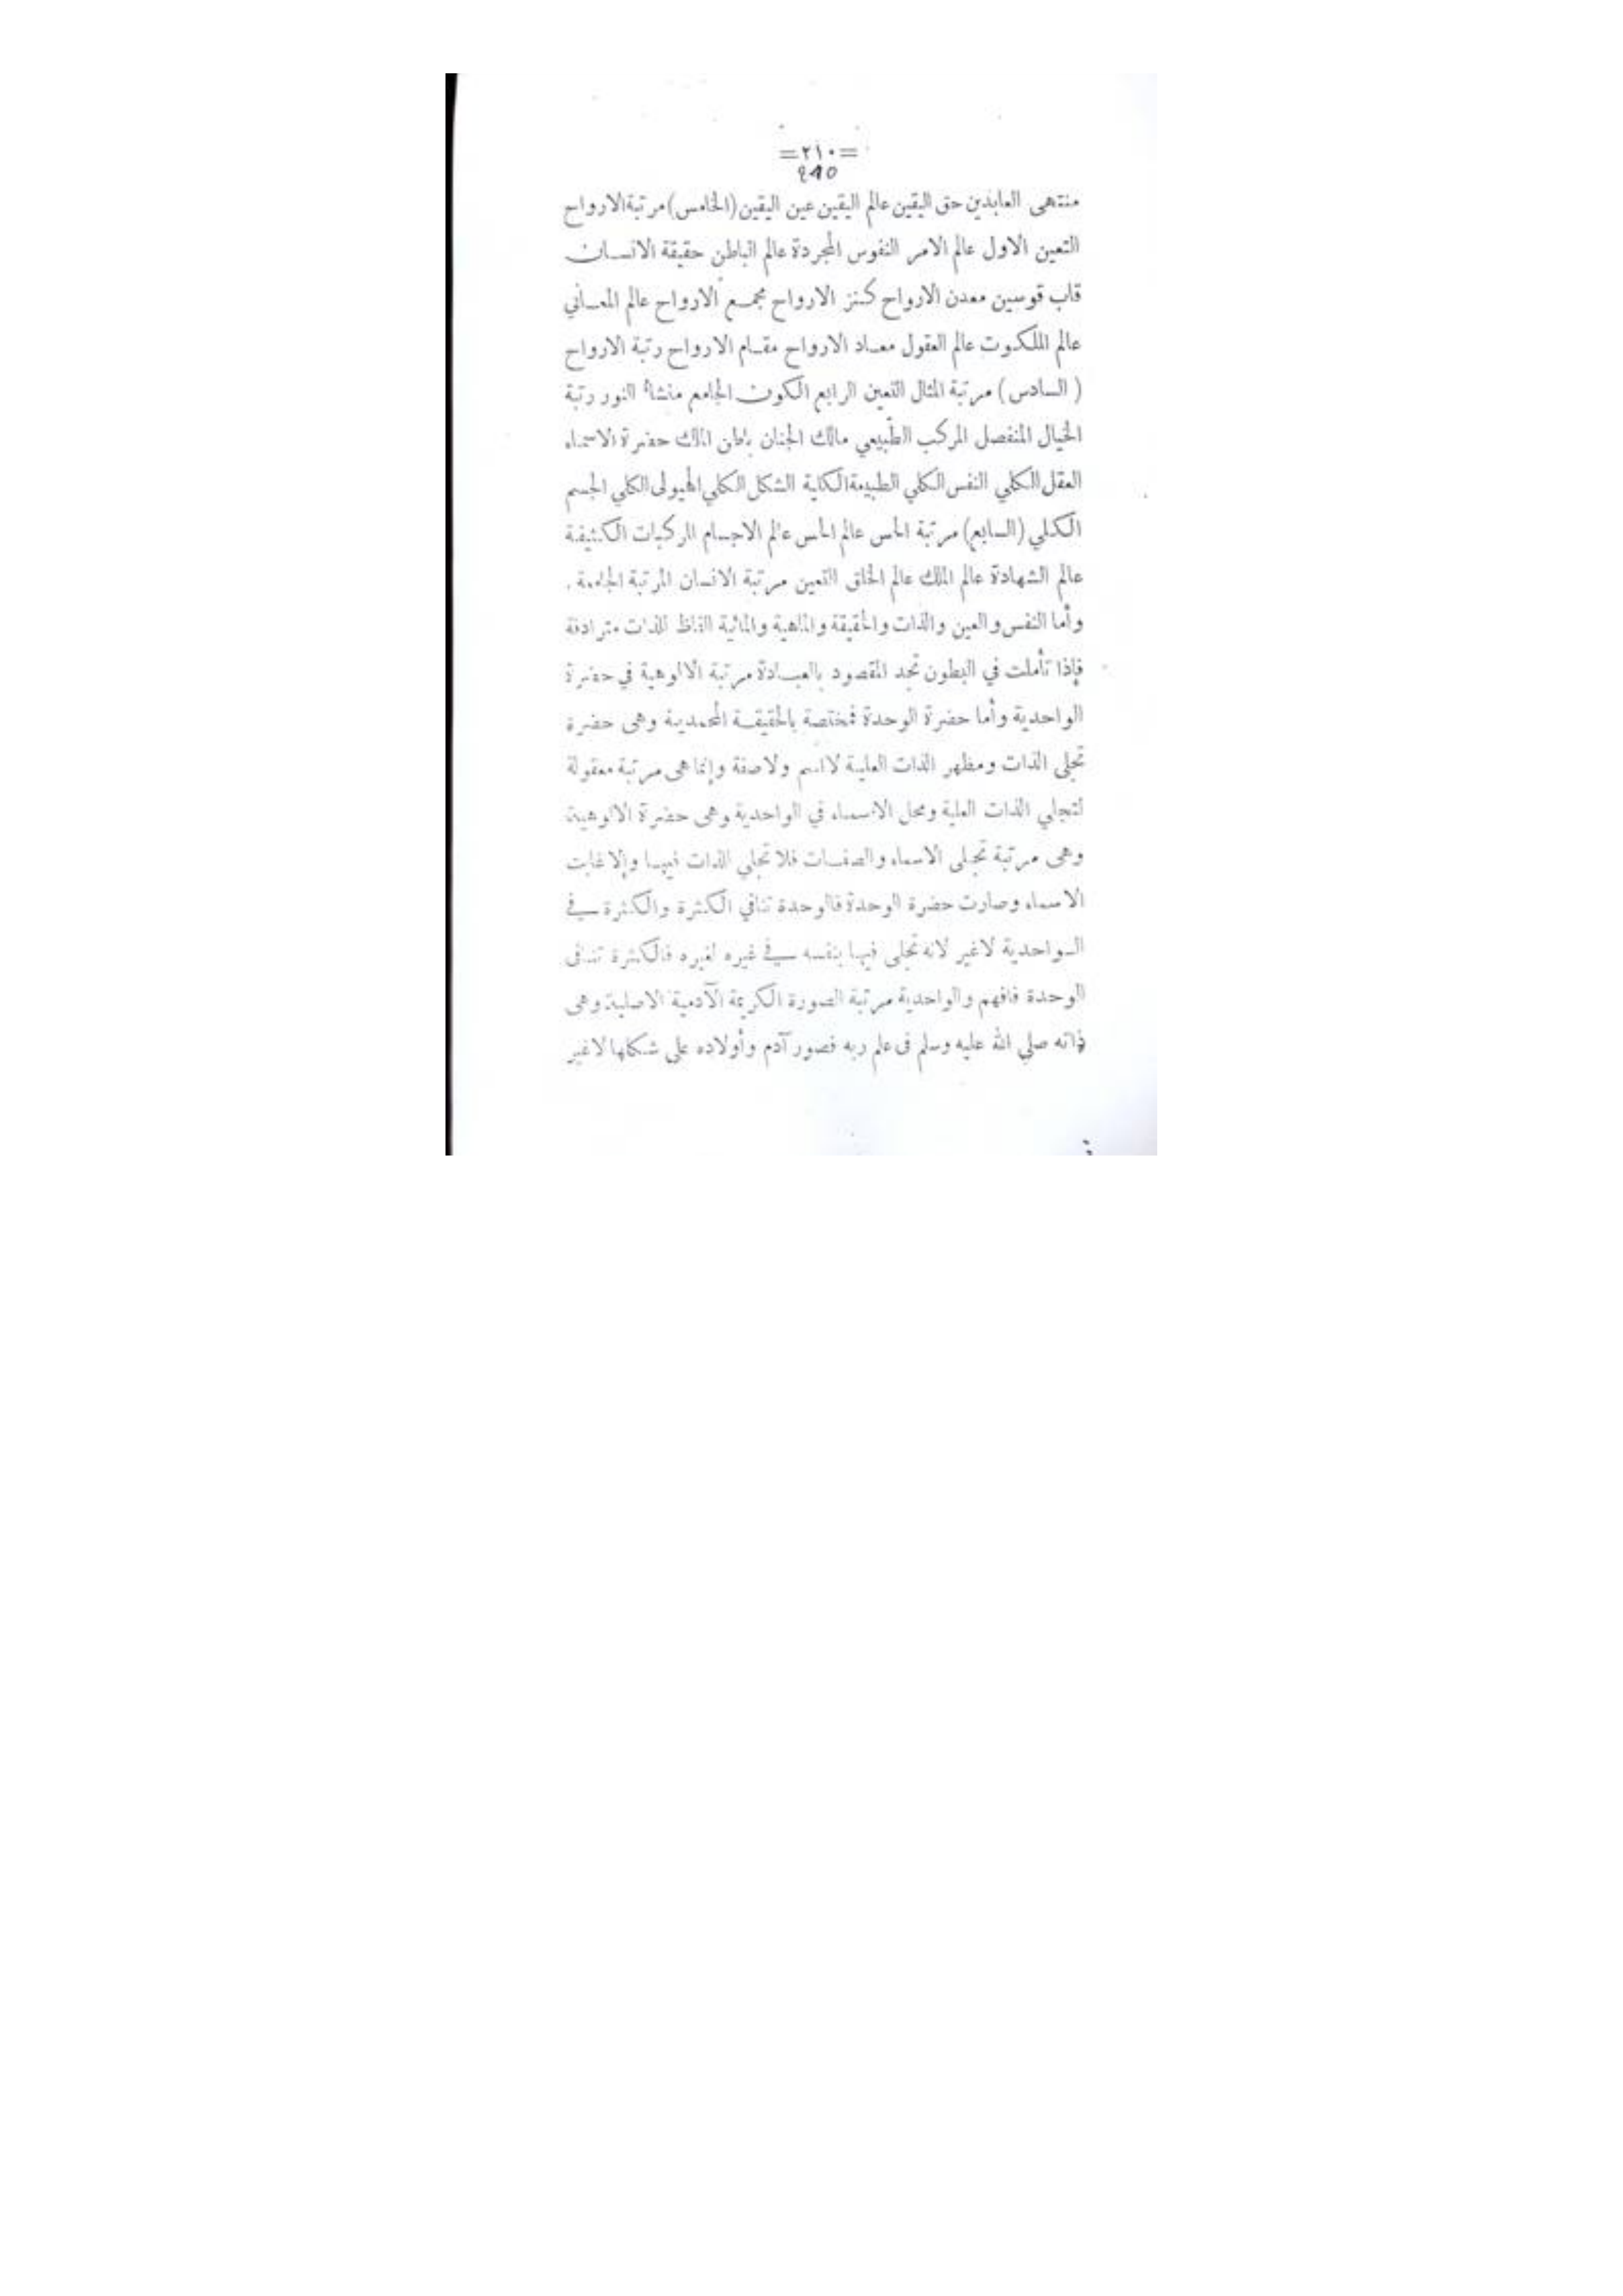 =٢١٠=
210
منتهى العابدين حق اليقين عالم اليقين عين اليقين (الخامس) مرتبة الارواح
التعين الاول عالم الامر النفوس المجردة عالم الباطن حقيقة الانسان
قاب قوسين معدن الارواح كنز الارواح مجمع الارواح عالم المعاني
عالم الملكوت عالم العقول معاد الارواح مقام الارواح رتبة الارواح
( السادس ) مرتبة المثال التعين الرابع الكون الجامع منشأ النور رتبة
الخيال المنفصل المركب الطبيعي مالك الجنان باطن الملك حضرة الاسماء
العقل الكلي النفس الكلي الطبيعة الكلية الشكل الكلي الهيولى الكلي الجسم
الكلي (السابع) مرتبة الحس عالم الحس عالم الاجسام المركبات الكثيفة
عالم الشهادة عالم الملك عالم الخلق التعين مرتبة الانسان المرتبة الجامعة .
وأما النفس والعين والذات والحقيقة والماهية والمائية الفاظ للذات مترادفة
فإذا تأملت في البطون تجد المقصود بالعبادة مرتبة الالوهية في حضرة
الواحدية وأما حضرة الوحدة فمختصة بالحقيقة المحمدية وهى حضرة
تجلى الذات ومظهر الذات العلية لا اسم ولا صفة وإنما هى مرتبة معقولة
لتجلي الذات العلية ومحل الاسماء في الواحدية وهى حضرة الالوهية
وهى مرتبة تجلى الاسماء والصفات فلا تجلي للذات فيها وإلا غابت
الاسماء وصارت حضرة الوحدة فالوحدة تنافي الكثرة والكثرة في
الواحدية لاغير لانه تجلى فيها بنفسه في غيره لغيره فالكثرة تنافى
الوحدة فافهم والواحدية مرتبة الصورة الكريمة الآدمية الاصلية وهى
ذاته صلي الله عليه وسلم فى علم ربه فصور آدم وأولاده على شكلها لاغير